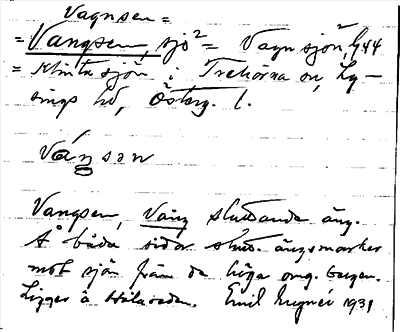 Vagnsen =
= Vangsen, sjö² = Vagnsjön, 944
= Klintasjön i Trehörna sn, Ly-
sings hd, Österg. l.
váŋsən
Vangsen, Vang sluttande äng.
Å båda sidor slutt. ängsmarker
mot sjön från de höga omg. bergen.
Ligger å Hålaveden. Emil 1931